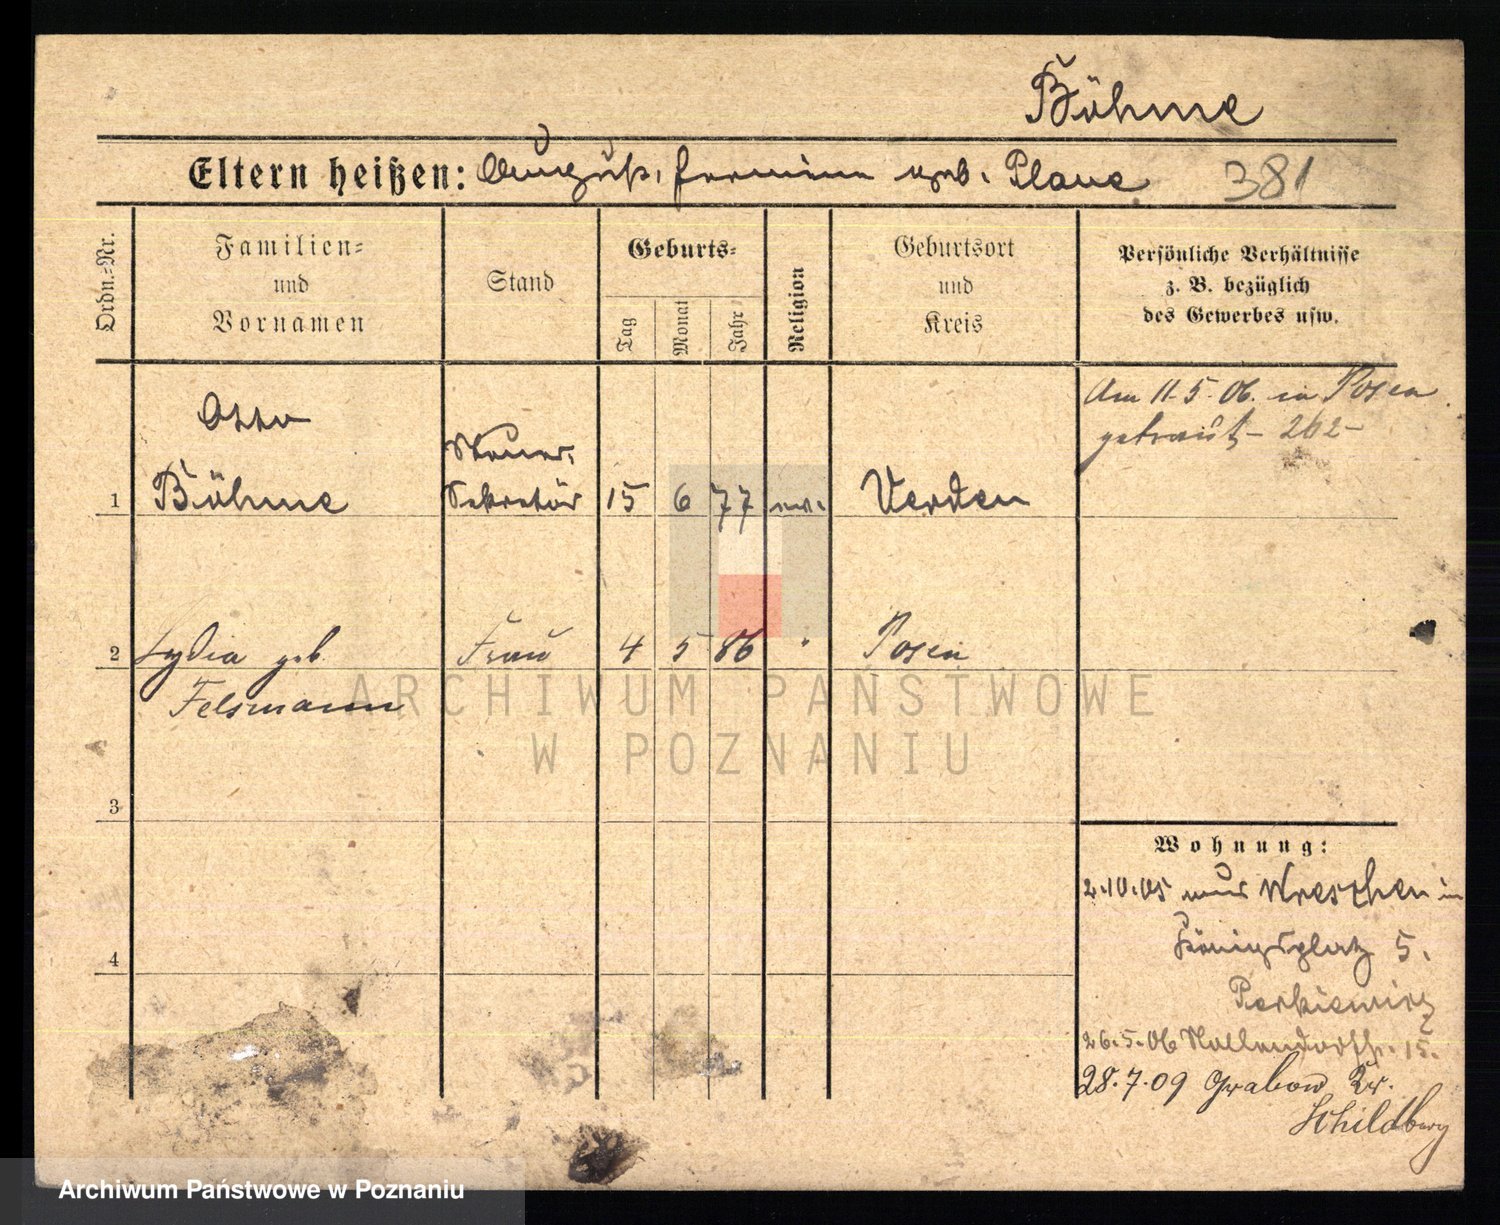 Böhme
Eltern heißen: August, Hermine geb. Plaue 381
Ordn.-Nr.
Familien-
und
Vornamen
Stand
Geburts-
Tag
Monat
Jahr
Religion
Geburtsort
und
Kreis
Persönliche Verhältnisse
z. B. bezüglich
des Gewerbes usw.
Am 11.5.06. in Posen
getraut - 262 -
Otto
Steuer-
1 Böhme Sekretär 15 6 77 ev. Verden
2 Lydia geb. Frau 4 5 86 " Posen
Felsmann
ARCHIWUM PAŃSTWOWE
W POZNANIU
3
Wohnung:
2.10.05 aus Wreschen in
Königsplatz 5.
4
26.5.06 Nollendorfstr. 15.
28.7.09 Grabow Kr.
Schildberg
Archiwum Państwowe w Poznaniu